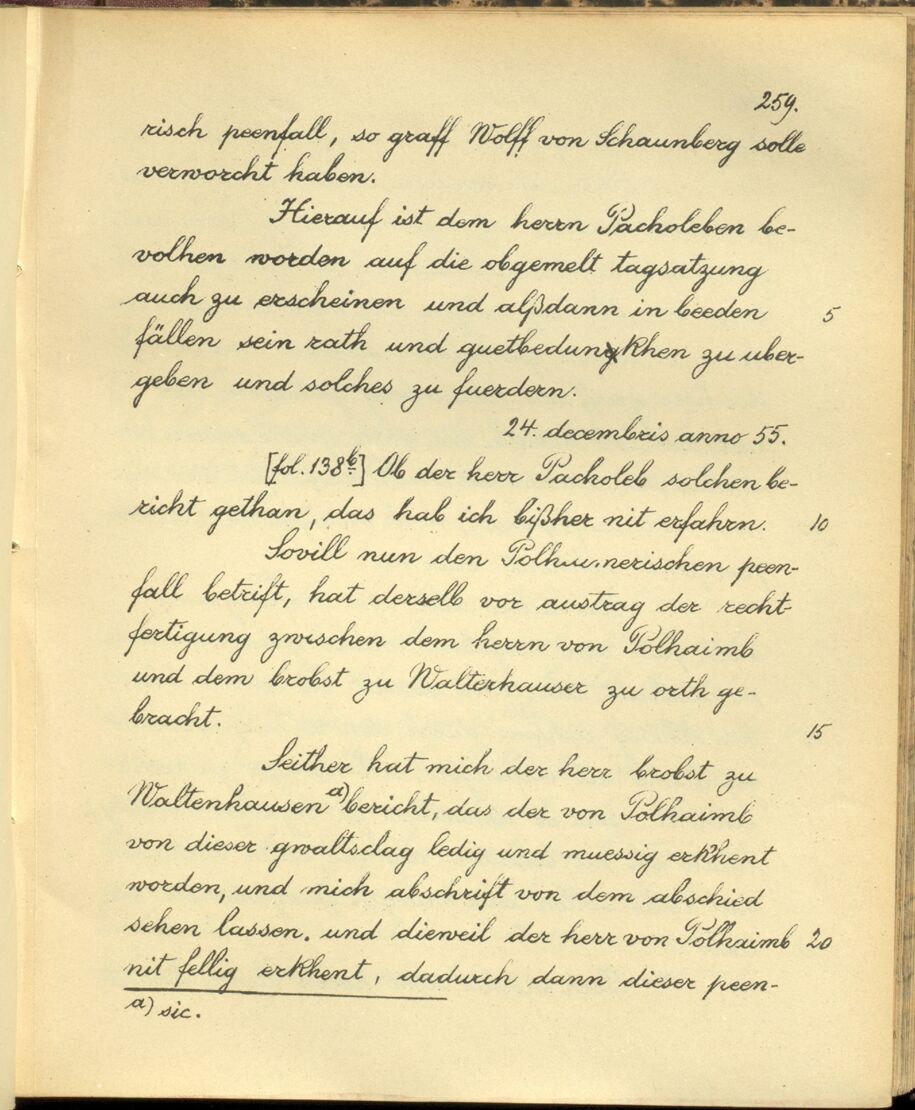 259.
risch peenfall, so graff Wolff von Schaunberg solle
verworcht haben.
Hierauf ist dem herrn Pacholeben be-
volhen worden auf die obgemelt tagsatzung
auch zu erscheinen und alßdann in beeden 5
fällen sein rath und guetbedunkhen zu uber-
geben und solches zu fuerdern.
24. decembris anno 55.
[fol. 138b.] Ob der herr Pacholeb solchen be-
richt gethan, das hab ich bißher nit erfahrn. 10
Sovill nun den peen-
fall betrift, hat derselb vor austrag der recht-
fertigung zwischen dem herrn von Polhaimb
und dem brobst zu Walterhauser zu orth ge-
bracht. 15
Seither hat mich der herr brobst zu
Waltenhausen a) bericht, das der von Polhaimb
von dieser gwaltsclag ledig und muessig erkhent
worden, und mich abschrift von dem abschied
sehen lassen. und dieweil der herr von Polhaimb 20
nit fellig erkhent, dadurch dann dieser peen-
a) sic.